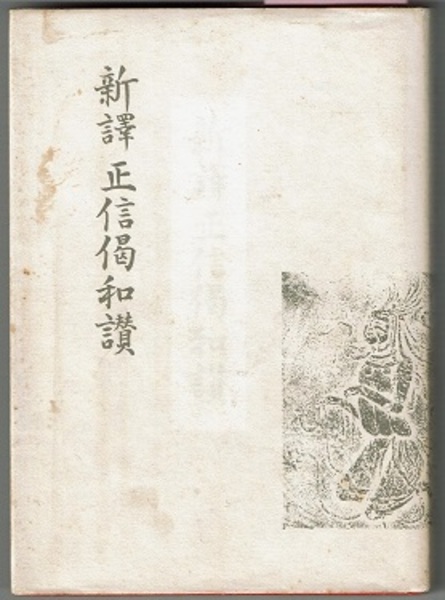 新譯 正信偈和讃